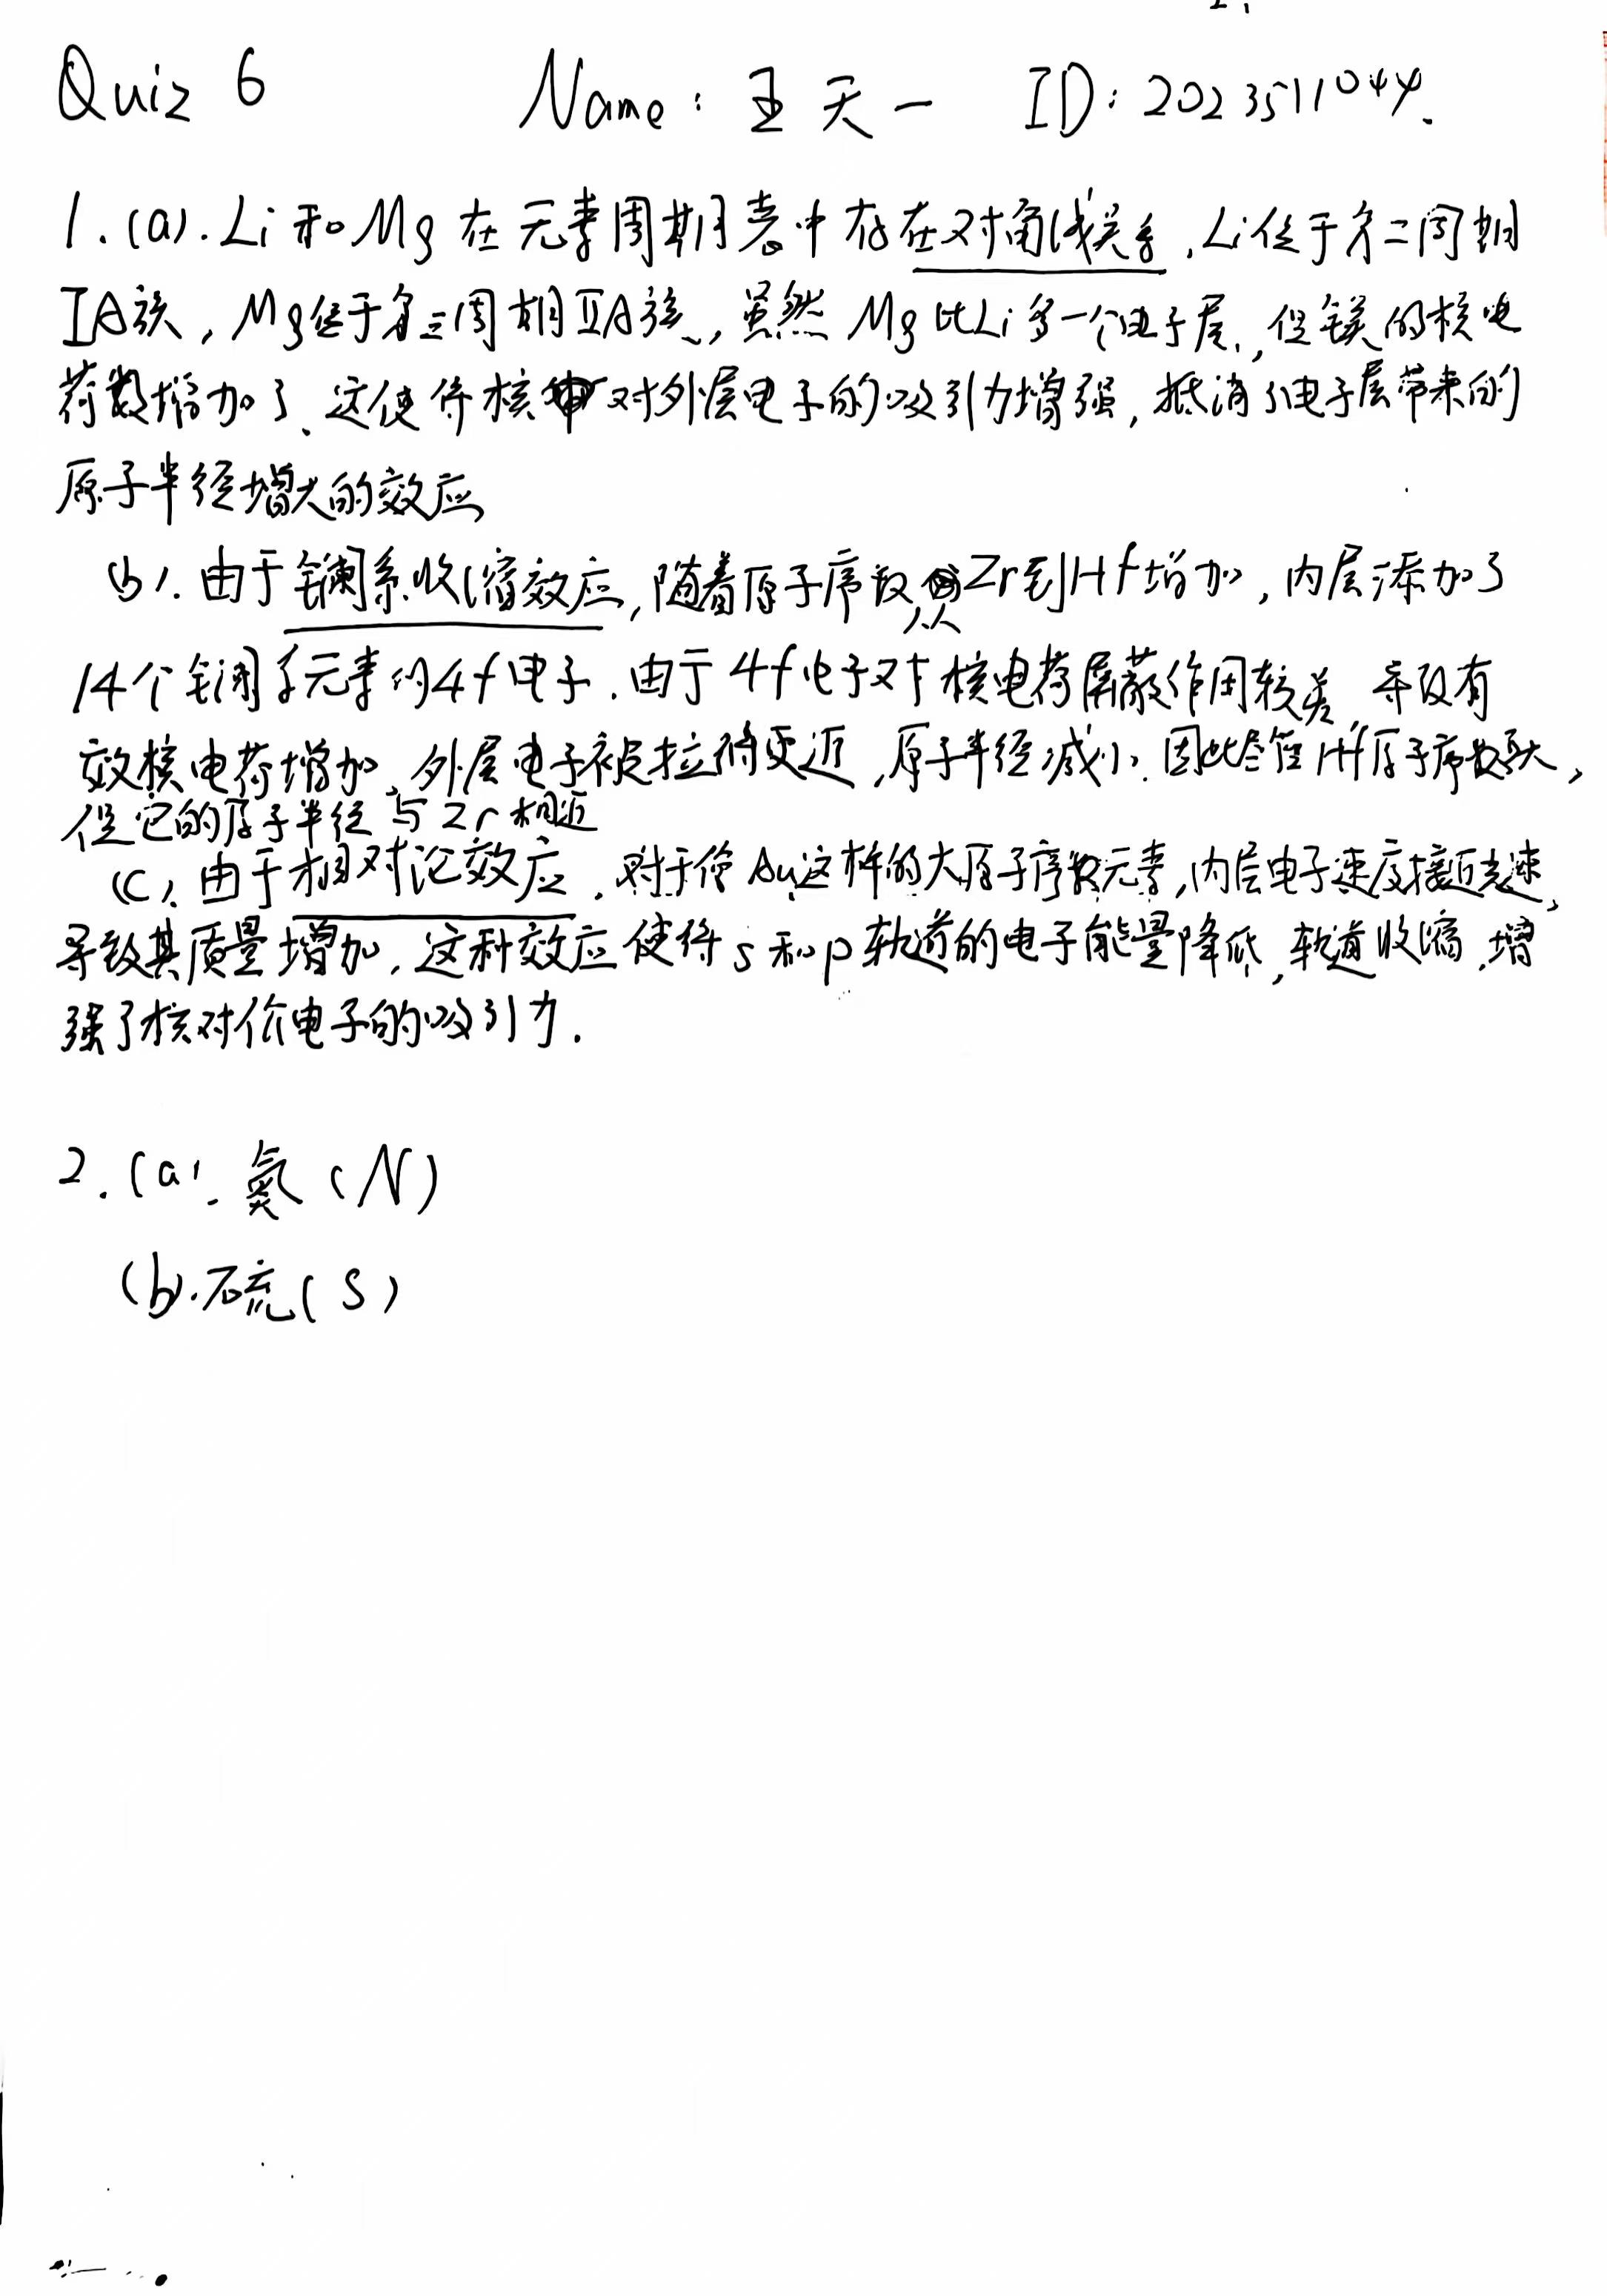 Quiz 6 Name: 王天一 ID: 2023511044.
1. (a). Li和Mg在元素周期表中存在对角线关系, Li位于第二周期
IA族, Mg位于第三周期IIA族, 虽然Mg比Li多一个电子层, 但镁的核电
荷数增加了、这使得核对外层电子的吸引力增强, 抵消了电子层带来的
原子半径增大的效应
(b). 由于镧系收缩效应, 随着原子序数从Zr到Hf增加, 内层添加了
14个镧系元素的4f电子. 由于4f电子对核电荷屏蔽作用较差, 导致有
效核电荷增加, 外层电子被拉得更近, 原子半径减小. 因此尽管Hf原子序数大,
但它的原子半径与Zr相近
(c). 由于相对论效应. 对于像Au这样的大原子序数元素, 内层电子速度接近光速,
导致其质量增加, 这种效应使得s和p轨道的电子能量降低, 轨道收缩, 增
强了核对价电子的吸引力.
2. (a). 氮 (N)
(b). 硫 (S)